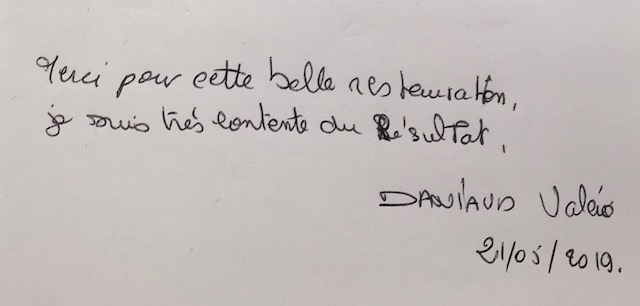 Merci pour cette belle restauration,
je suis très contente du Résultat,
DANIAUD Valérie
21/05/2019.